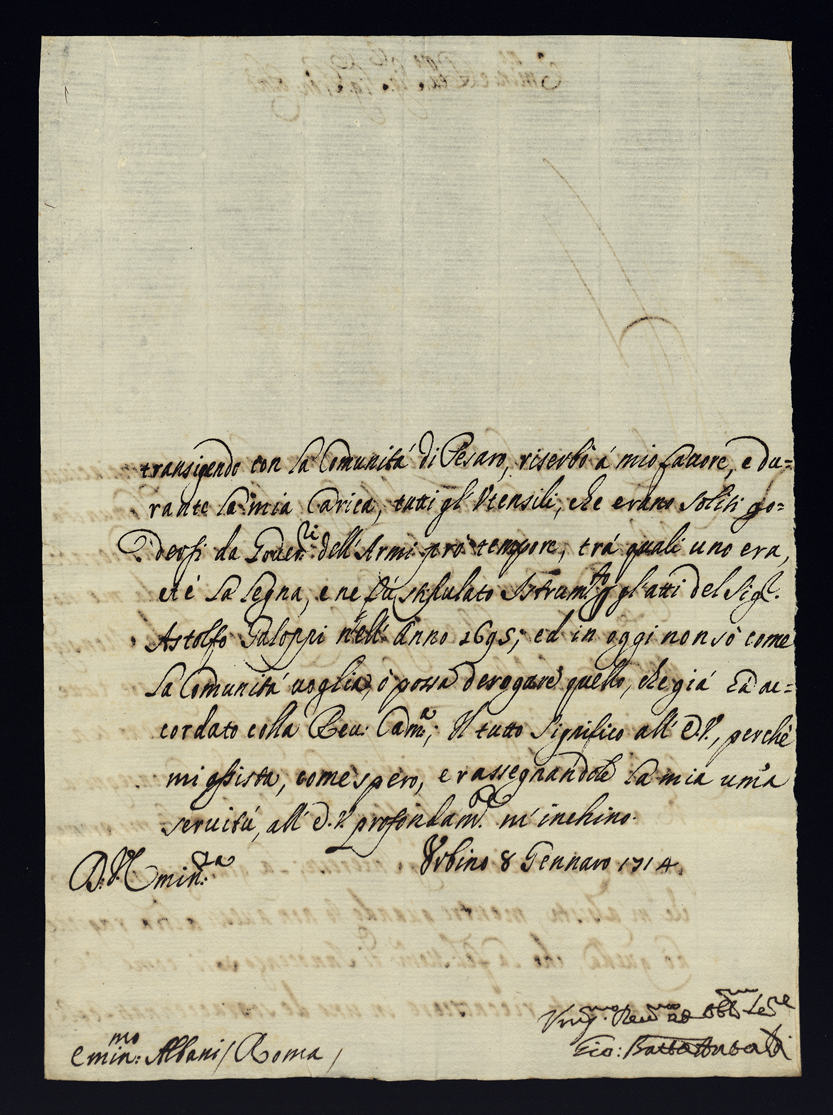 transigendo con la Comunitá di Pesaro, riserbò á mio favore, e du=
rante la mia Carica, tutti gl'Utensili, che erano soliti go=
dersi da Gover:ri dell'Armi prò tempore, trá quali uno era,
et é la legna, e ne fú stipulato Istrum:to p gl'atti del Sigr.
Astolfo Galoppi nell'Anno 1695; ed in oggi non sò come
la Comunitá voglia, ó possa derogare quello, che giá há ac=
cordato colla Reu: Cam:a; Il tutto significo all'E.V., perché
mi assista, come spero, e rassegnandole la mia um:a
servitú, all'E.V. profondam:te m'inchino.
Urbino 8 Gennaro 1714.
D. V. Emin:za
Gio: Batta
Emin:mo Albani / Roma /